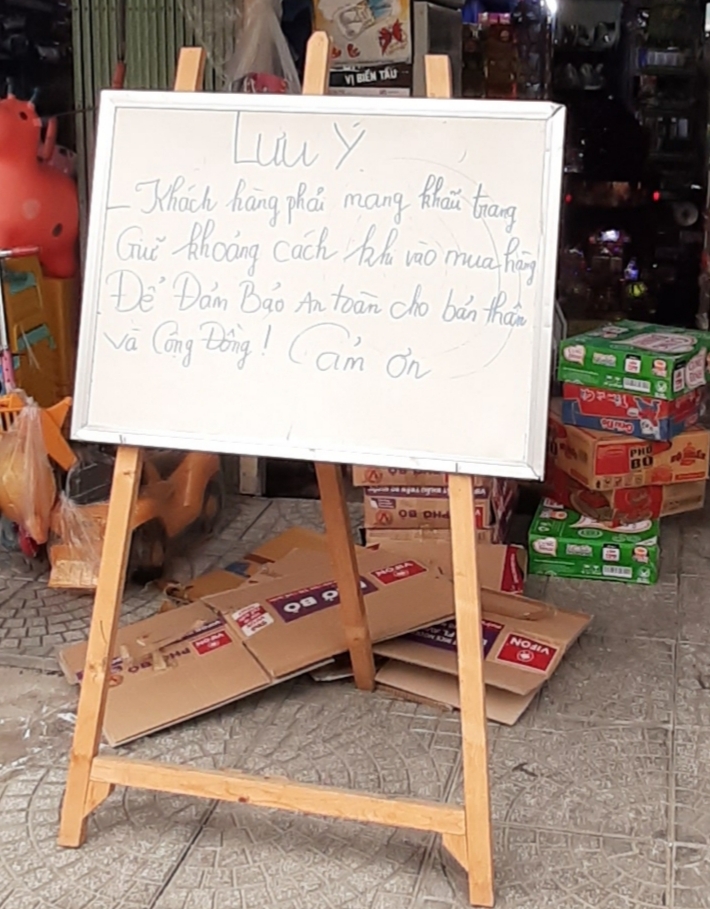 VỊ BIỂN TẤU
Lưu Ý
– Khách hàng phải mang khẩu trang
Giữ khoảng cách khi vào mua hàng
Để Đảm Bảo An toàn cho bản thân
và Cộng Đồng! Cảm ơn
PHỞ BÒ
PHỞ BÒ
VIFON
PHỞ BÒ
VIFON
VIFON